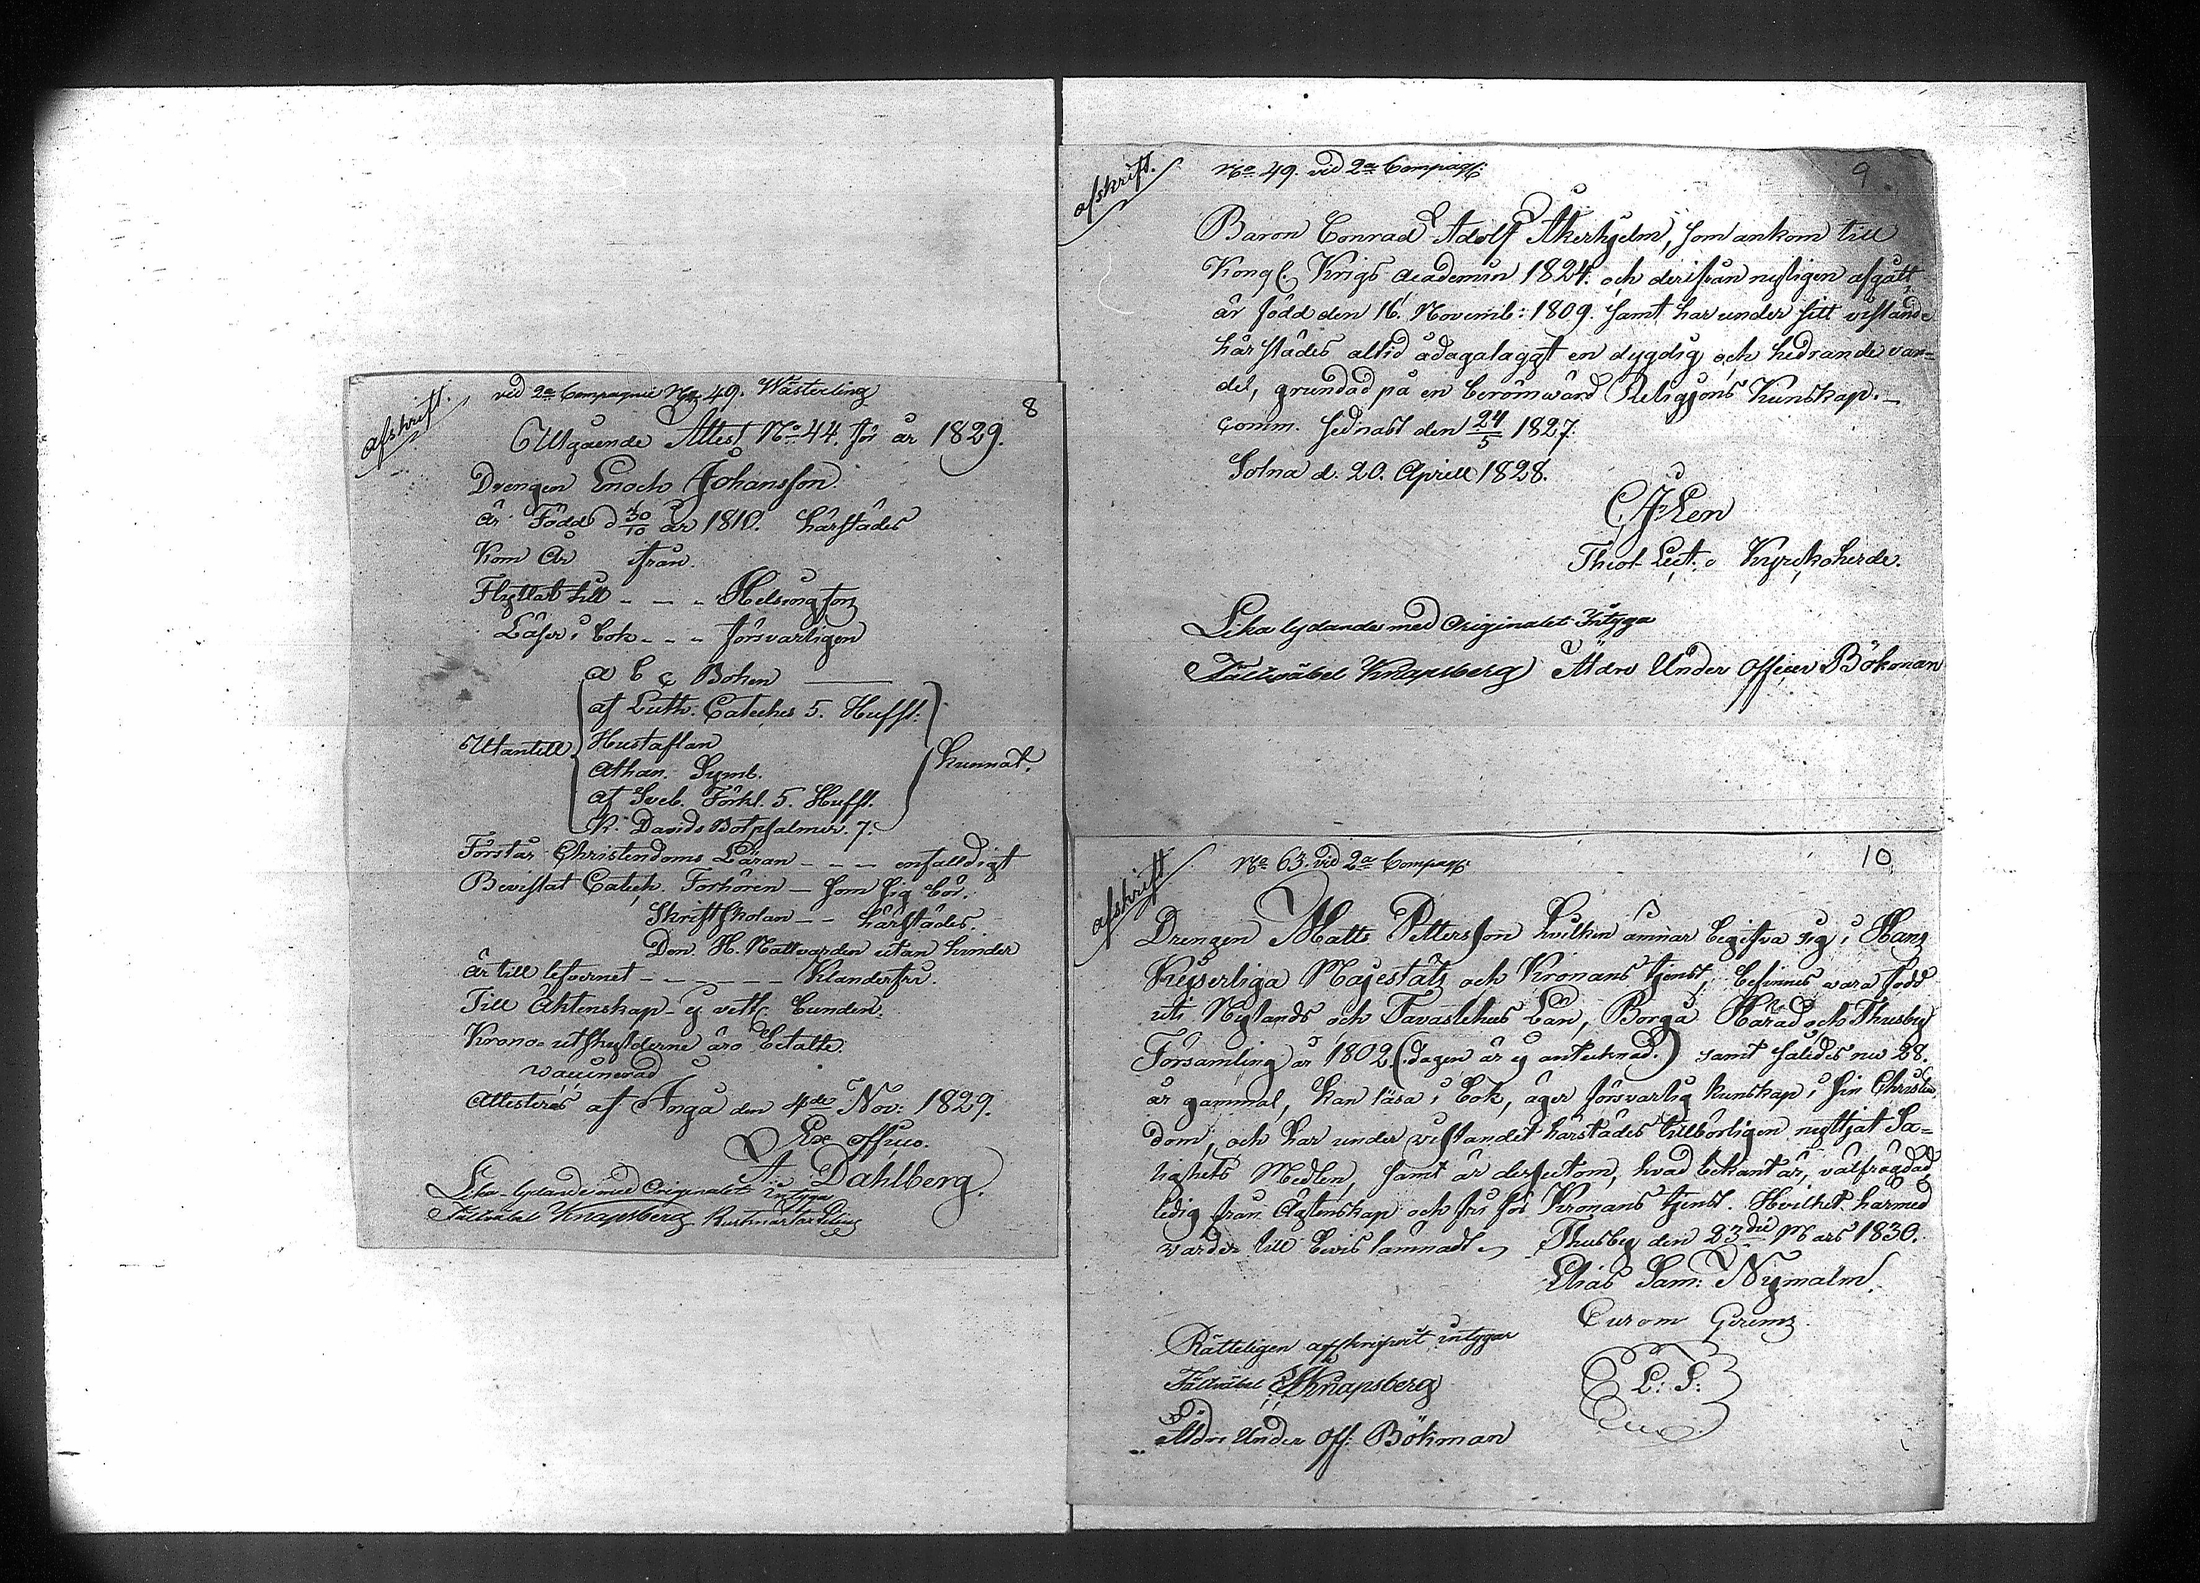 afskrift.
vid 2a Compagnie No 49. Wästerling
8
Utgående Attest No 44. för år 1829.
Drengen Enoch Johansson
är Född d 30/10 år 1810. härstädes
Kom År ifrån
Flyttat till - - - Helsingfors
Läser i bok - - - försvarligen
a b c Boken
af Luth. Cateches 5. Hufst:
Hustaflan
Utantill
Kunnat.
Athan. Symb.
af Sveb. Förkl. 5. Hufst.
K. Davids Botpsalmer. 7.
Förstår Christendoms Läran - - - enfalldigt
Bevistat Catech. Förhören - som sig bör.
Skriftskolan - - härstädes.
Den H. Nattvarden utan hinder
är till lefvernet - - - - - Klanderfri.
Till Äktenskap - ej vetl. bunden.
Krono utskylderne äro betalte.
waccinerad
Attesteras af Ingå den 4de Nov: 1829.
Ex officio.
A. Dahlberg.
Lika lydande med Originalet intyga
Fältväbel Knapsberg
afskrift.
No 49. vid 2a Compag:
9
Baron Conrad Adolf Åkerhjelm, som ankom till
Kongl. Krigs Academien 1824. och derifrån nyligen afgått
är född den 16. Novemb: 1809. samt har under sitt vistande
härstädes altid ådagalaggt en dygdig och hedrande van=
del, grundad på en berömwärd Religions Kunskap. -
Comm. sednast den 24/5 1827.
Solna d. 20. Aprill 1828.
Theol. Lect. o Kyrckoherde.
Lika lydande med Originalet Intyga
Fältväbel Knapsberg Äldre Under Officer Bökman
afskrift
No 63. vid 2a Compag:
10
Drengen Matts Pettersson hvilken ämnar begifva sig i Hans
Kejserliga Majestäts och Kronans tjenst, befinnes vara född
uti Nylands och Tavastehus Län, Borgå Härad och Thusby
Församling år 1802 (dagen är ej antecknad.) samt således nu 28.
år gammal, kan läsa i bok, äger försvarlig kunskap i sin Christen
dom, och har under vistandet härstädes tillbörligen nyttjat Sa=
lighets Medlen, samt är dessutom, hvad bekant är, välfrägdad
ledig från Ägtenskap och fri för Kronans tjenst. Hvilket härmed
varder till bevis lämnadt. Thusby den 23die Mars 1830.
Elias Sam: Nymalm.
Rätteligen afskrifvit intygar
Fältväbel Knapsberg
L: S:
Äldre Under Off: Bökman